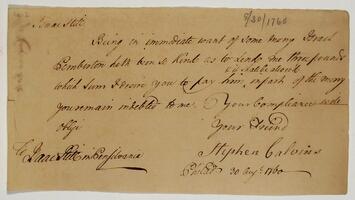 8/30/1760
Isaac Stille
Being in immediate want of some mony Israel
Pemberton hath been so kind as to Lend me three pounds
which Sum I desire you to pay him, in part of the mony
you remain indebted to me. Your Compliance will
oblige
Your Friend
Stephen Calvins
To Isaac Stille in Pensilvania
Philad 30 Augt 1760